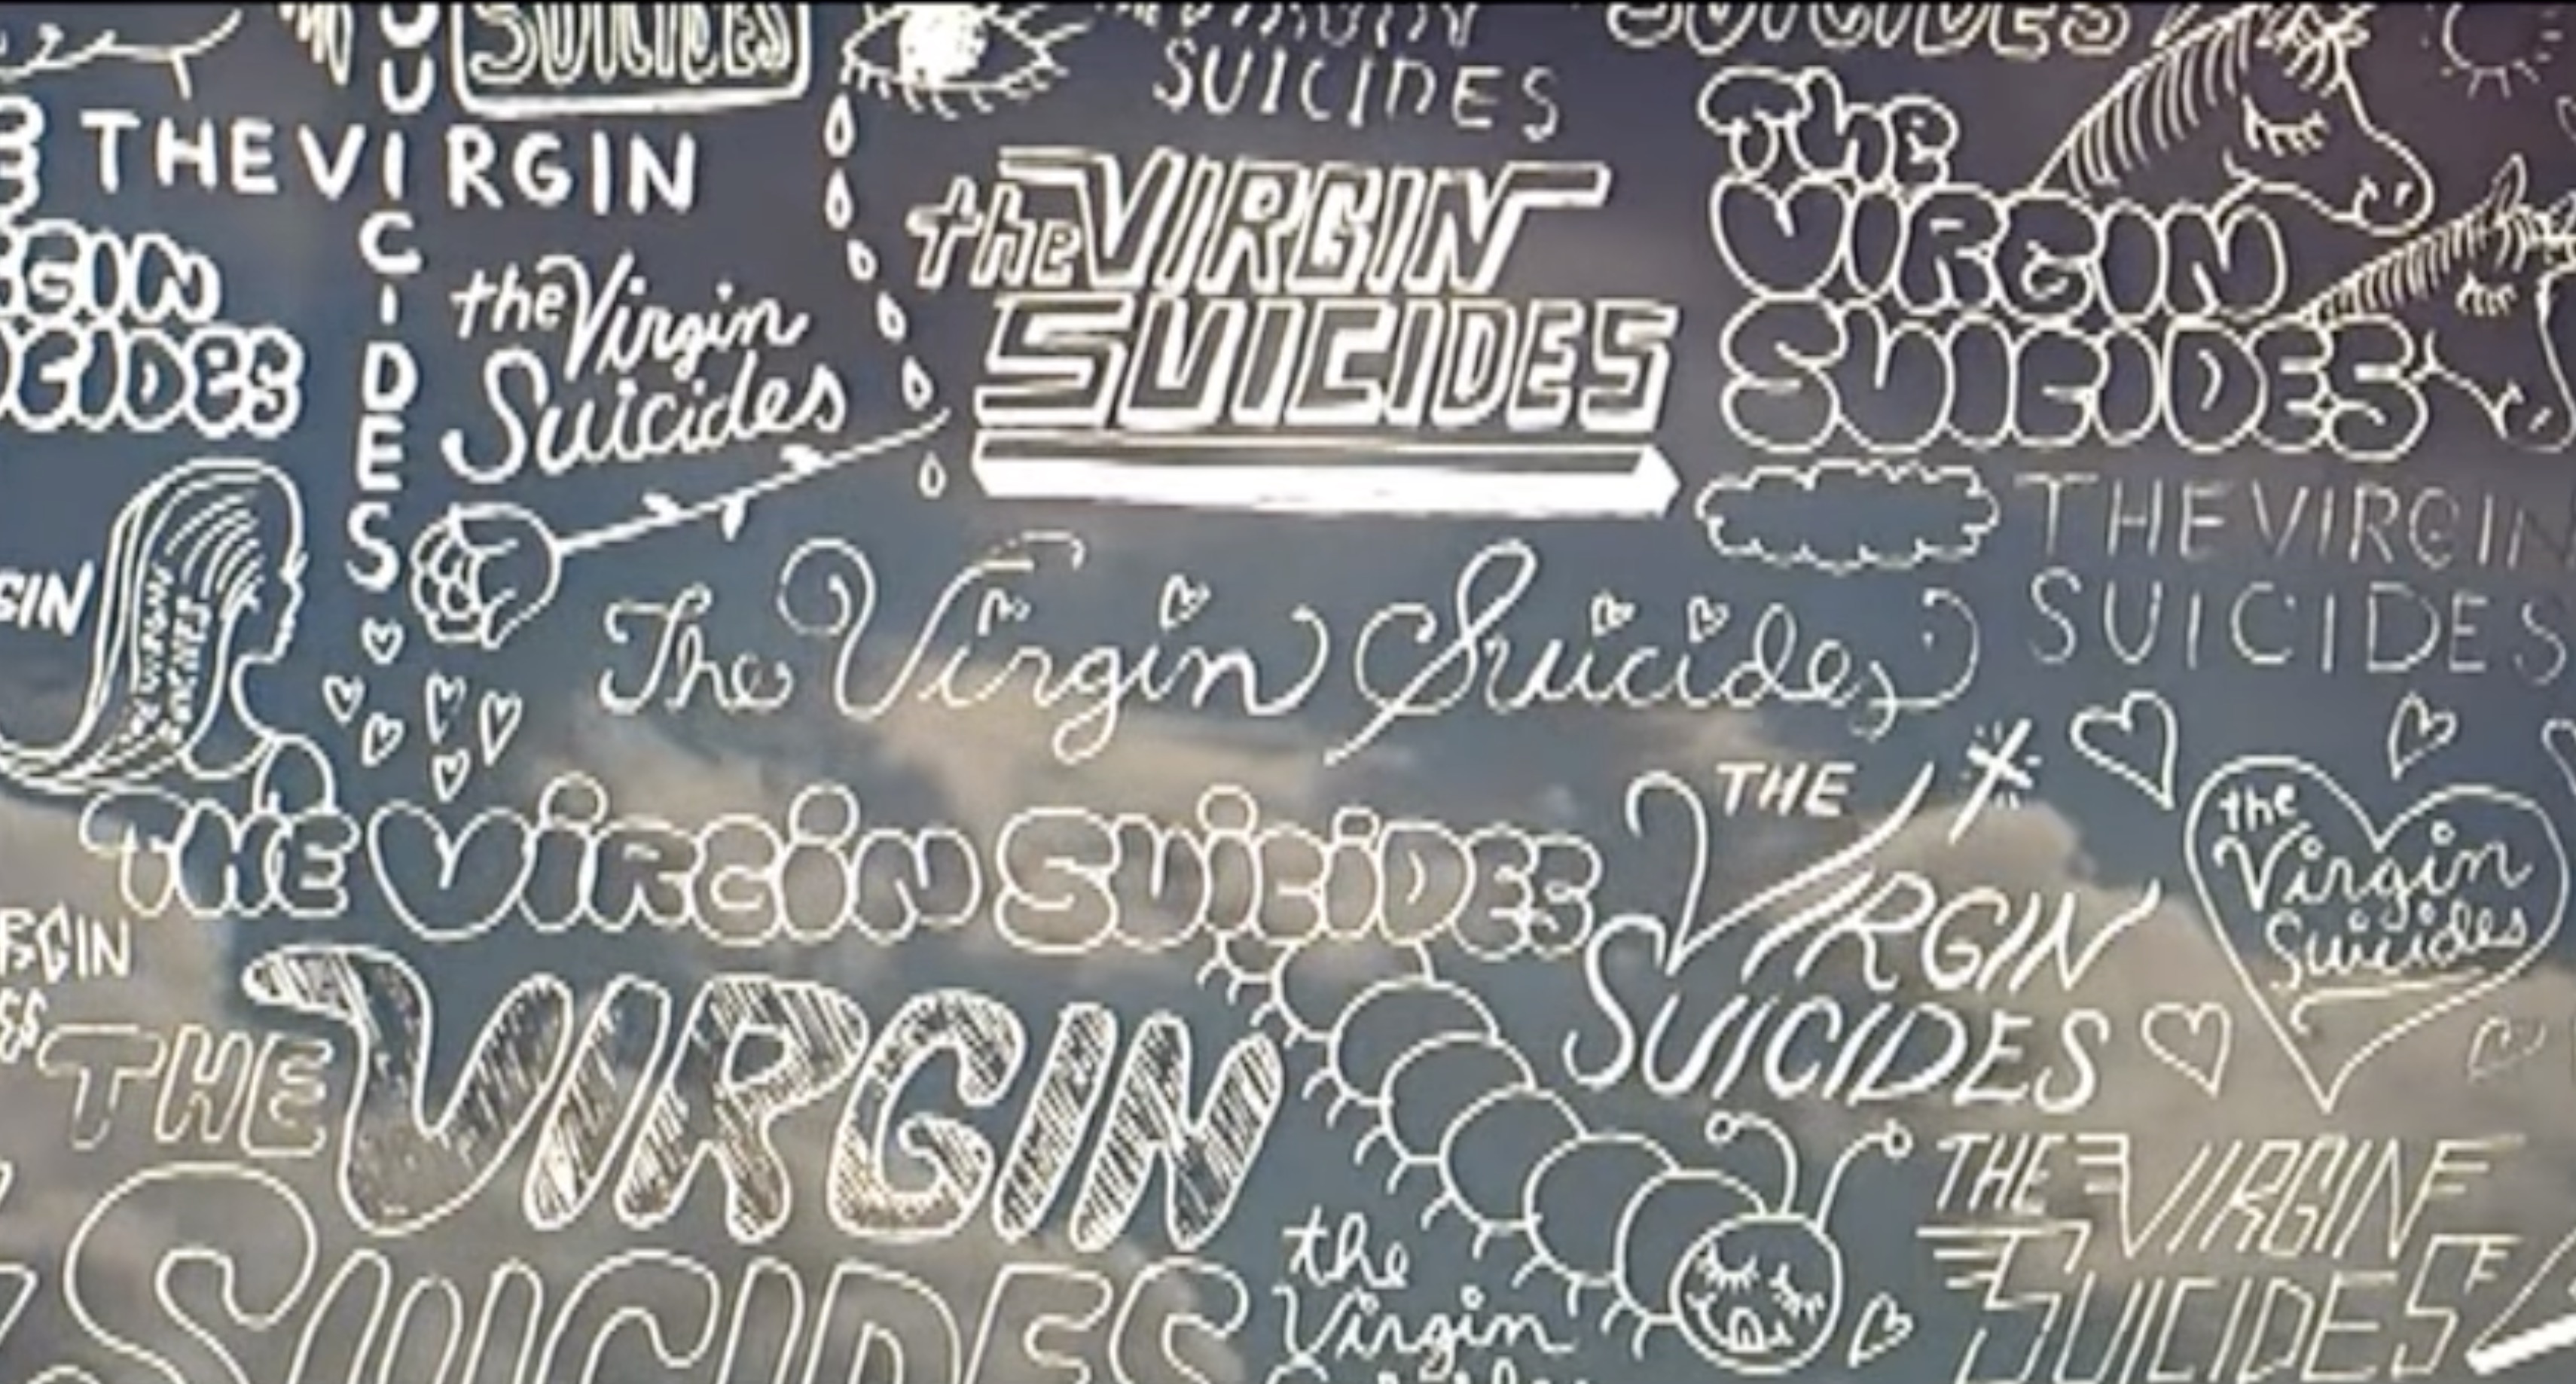 SUICIDES
SUICIDES
SUICIDES
SUICIDES
THE VIRGIN
the VIRGIN
SUICIDES
The
VIRGIN
SUICIDES
GIN
CIDES
the Virgin
Suicides
THE VIRGIN
SUICIDES
GIN
THE VIRGIN
SUICIDES
The Virgin Suicides
THE
VIRGIN
SUICIDES
the
Virgin
Suicides
THE VIRGIN SUICIDES
RGIN
ES
THE VIRGIN
SUICIDES
the
Virgin
THE VIRGIN
SUICIDES